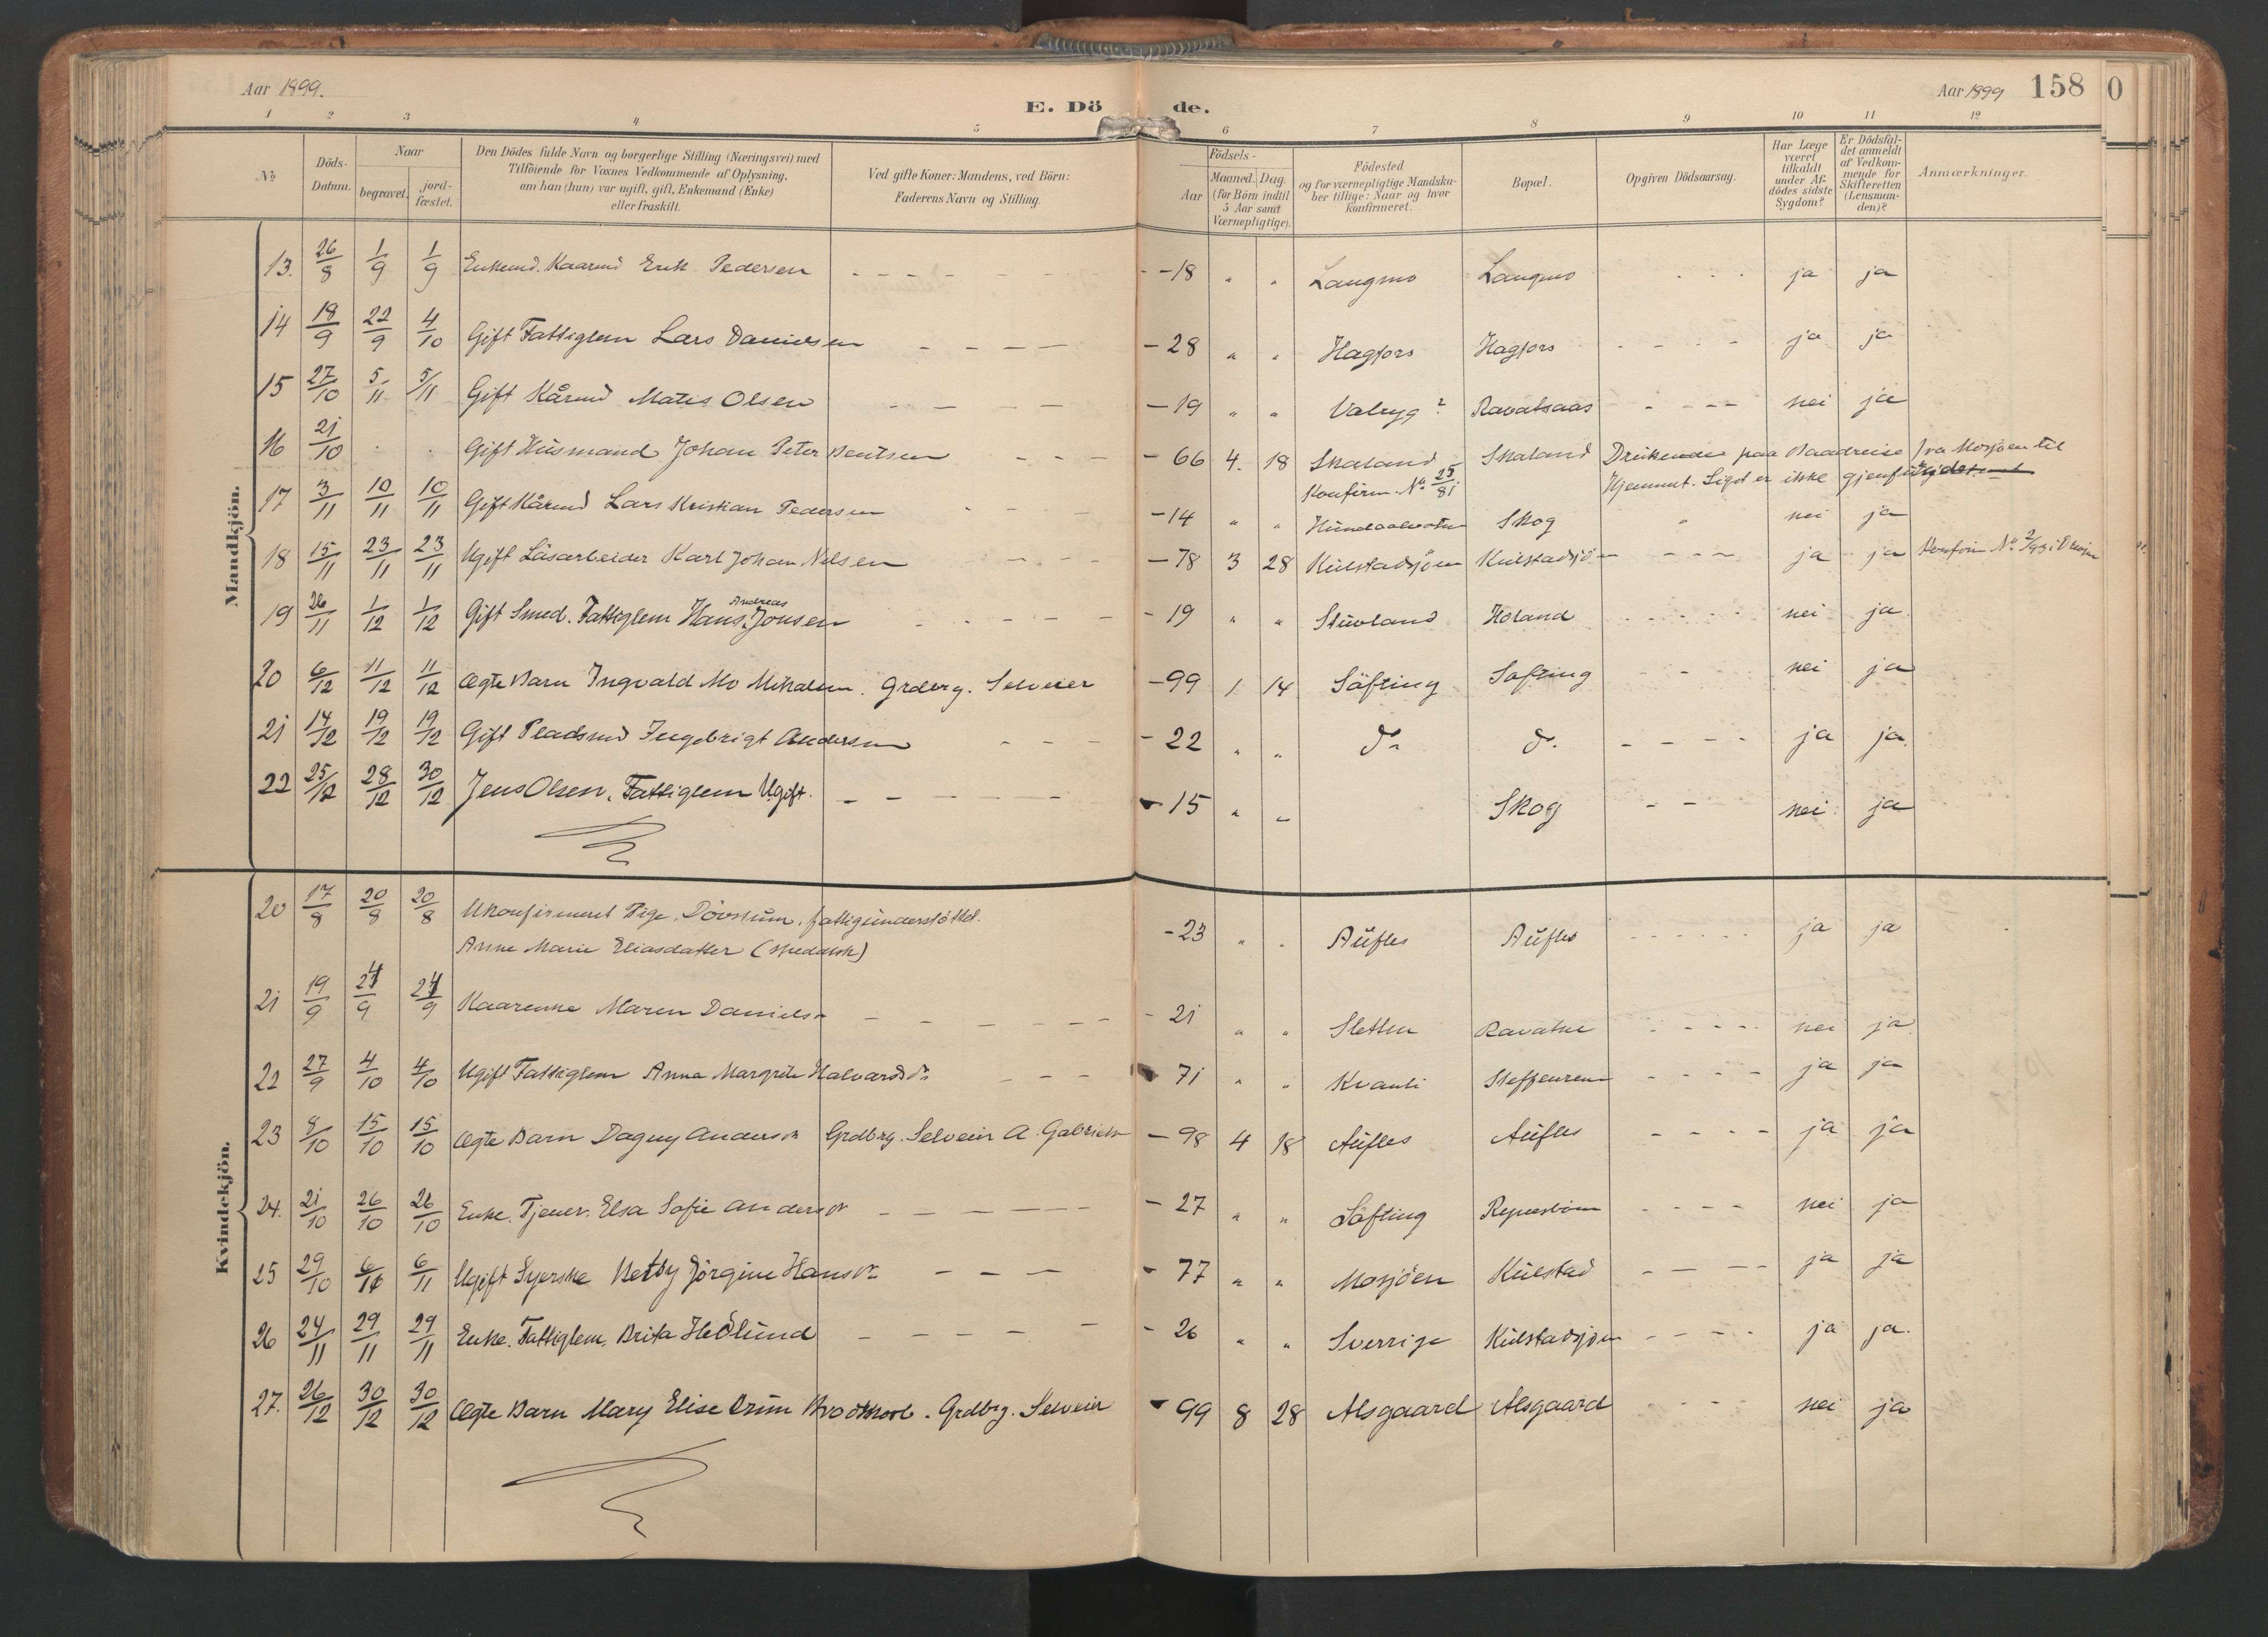 Aar 1899.
E. Döde.
Aar 1899 158 0
1 2 3 4 5 6 7 8 9 10 11 12
No
Döds-Datum.
Naar
begravet.
jord-fæstet.
Den Dödes fulde Navn og borgerlige Stilling (Næringsvei) med
Tilföiende for Voxnes Vedkommende af Oplysning,
om han (hun) var ugift, gift, Enkemand (Enke)
eller fraskilt.
Ved gifte Koner: Mandens, ved Börn:
Faderens Navn og Stilling.
Födsels-
Aar
Maaned. Dag.
(for Börn indtil
5 Aar samt
Værnepligtige).
Födested
og for værnepligtige Mandska-
ber tillige: Naar og hvor
konfirmeret.
Bopæl.
Opgiven Dödsaarsag.
Har Læge
været
tilkaldt
under Af-
dödes sidste
Sygdom?
Er Dödsfal-
det anmeldt
af Vedkom-
mende for
Skifteretten
(Lensman-
den)?
Anmærkninger.
Mandkjön.
13. 26/8 1/9 1/9 Enkemd. Kaarmd Erik Pedersen - - - - - -18 " " Langmo Langmo ja ja
14 18/9 22/9 4/10 Gift Fattiglem Lars Danielsen - - - - -28 " " Hagfors Hagfors - - - - ja ja
15 27/10 5/11 5/11 Gift Kårmd Mates Olsen - - - - -19 " " Valryg? Ravatsaas - - - - nei ja
16 21/10 . . Gift Husmand Johan Peter Bentsen - - - -66 4. 18 Skaland Skaland Druknede paa Baadreise fra Mosjøen til
Konfirm. No 25/81 Hjemmet. Liget er ikke
17 3/11 10/11 10/11 Gift Kårmd Lars Kristian Pedersen - - - -14 " " Skog " nei ja
18 15/11 23/11 23/11 Ugift Läsarbeider Karl Johan Nilsen - - - -78 3 28 Kulstadsjøen Kulstadsjö - - - ja ja Konfirm No 2/93 i
19 26/11 1/12 1/12 Gift Smed. Fattiglem Hans Andreas Jonsen - - - - -19 " " Stuvland Holand nei ja.
20 6/12 11/12 11/12 Ægte Barn Ingvald Mo Mikalsen. Grdbrg. Selveier -99 1 14 Söfting Söfting - - nei ja
21 14/12 19/12 19/12 Gift Pladsmd Ingebrigt Andersen - - - -22 " " do do - - - - ja ja.
22 25/12 28/12 30/12 Jens Olsen, Fattiglem Ugift. - - - - - -15 " " Skog - - nei ja
Kvindekjön.
20 17/8 20/8 20/8 Ukonfirmeret Pige, Døvstum, fattigunderstøttet.
Anne Marie Eliasdatter (spedalsk) -23 " " Aufles Aufles - - - - ja ja
21 19/9 24/9 24/9 Kaarenke Maren Danielsdr - - - - - -21 " " Sletten Ravatne - - - - nei ja
22 27/9 4/10 4/10 Ugift Fattiglem Anna Margrete Halvardsdr - - - 71 " " Kvanli Steffenrem - - - - ja ja
23 8/10 15/10 15/10 Ægte Barn Dagny Andersdr Grdbrg. Selveier A. Gabrielsen -98 4 18 Aufles Aufles - - - - ja ja
24. 21/10 26/10 26/10 Enke. Tjener. Elsa Sofie Andersdr - - - - - -27 " " Söfting - - - - nei ja
25 29/10 6/11 6/11 Ugift Syerske Betsy Jörgine Hansdr - - - -77 " " Mosjöen Kulstad - - - - ja ja
26 24/11 29/11 29/11 Enke. Fattiglem. Brita Hedlund - - - - -26 " " Sverrige Kulstadsjøen - - - - ja ja.
27. 26/12 30/12 30/12 Ægte Barn Mary Elise Brun . Grdbrg. Selveier -99 8 28 Alsgaard Alsgaard - - - nei ja